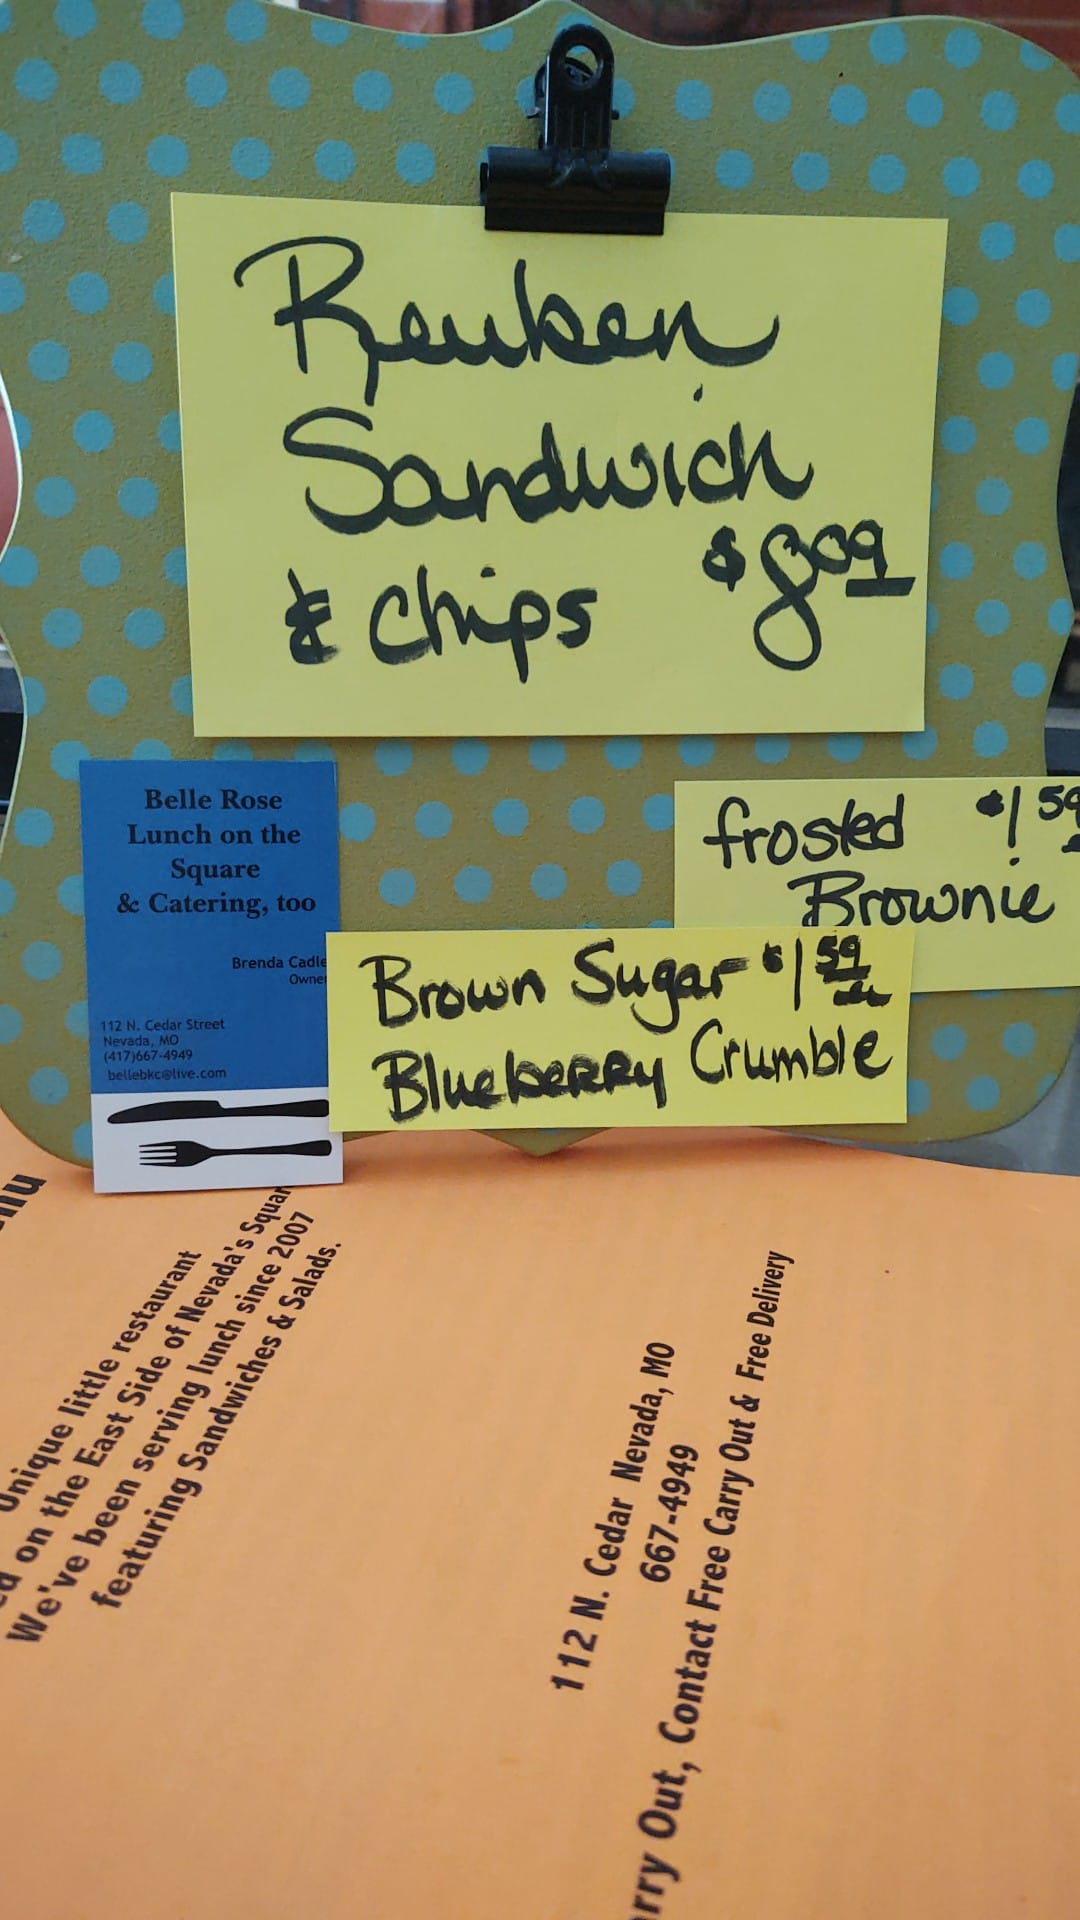 Reuben
Sandwich
& Chips $8.09
Belle Rose
Lunch on the
Square
& Catering, too
Brenda Cadle
Owner
112 N. Cedar Street
Nevada, MO
(417)667-4949
bellebkc@live.com
frosted $1.59
Brownie
Brown Sugar $1.59
Blueberry Crumble
Unique little restaurant
on the East Side of Nevada's Square
We've been serving lunch since 2007
featuring Sandwiches & Salads.
112 N. Cedar Nevada, MO
667-4949
Out, Contact Free Carry Out & Free Delivery